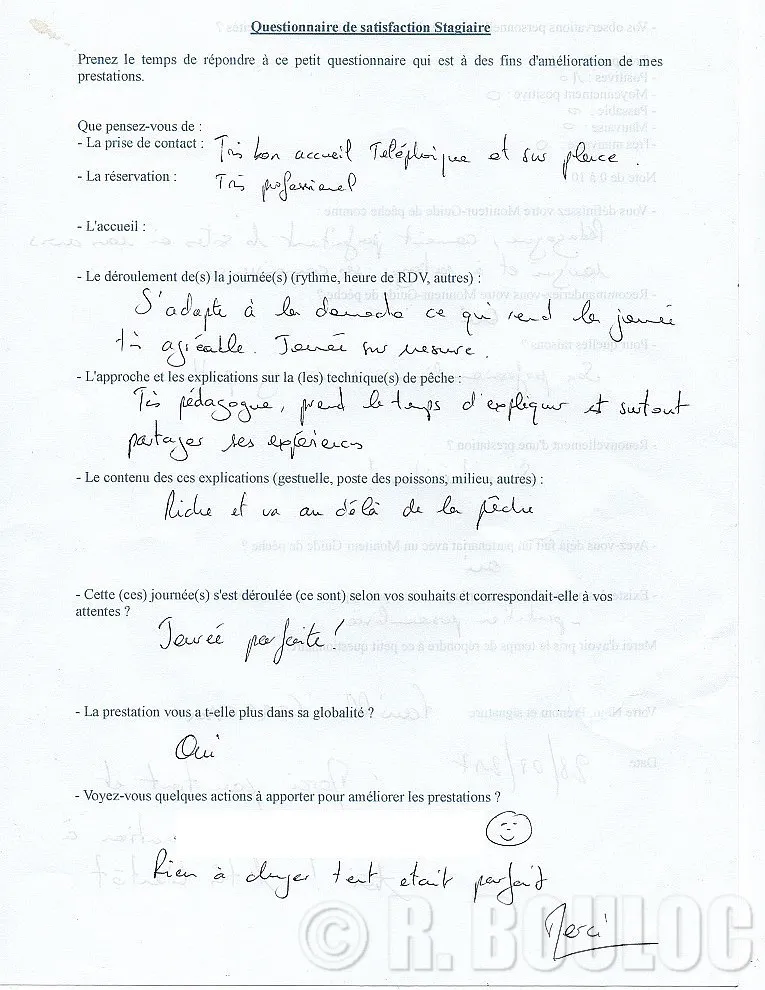 Questionnaire de satisfaction Stagiaire
Prenez le temps de répondre à ce petit questionnaire qui est à des fins d'amélioration de mes
prestations.
Que pensez-vous de :
- La prise de contact : Très bon accueil Téléphonique et sur place.
- La réservation : Très professionnel
- L'accueil :
- Le déroulement de(s) la journée(s) (rythme, heure de RDV, autres) :
S'adapte à la demande ce qui rend la journée
très agréable. Journée sur mesure.
- L'approche et les explications sur la (les) technique(s) de pêche :
Très pédagogue, prend le temps d'expliquer et surtout
partager ses expériences
- Le contenu des ces explications (gestuelle, poste des poissons, milieu, autres) :
Riche et va au délà de la pêche
- Cette (ces) journée(s) s'est déroulée (ce sont) selon vos souhaits et correspondait-elle à vos
attentes ?
Journée parfaite !
- La prestation vous a t-elle plus dans sa globalité ?
Oui
- Voyez-vous quelques actions à apporter pour améliorer les prestations ?
Rien à changer tout etait parfait
Merci
© R. BOULOC